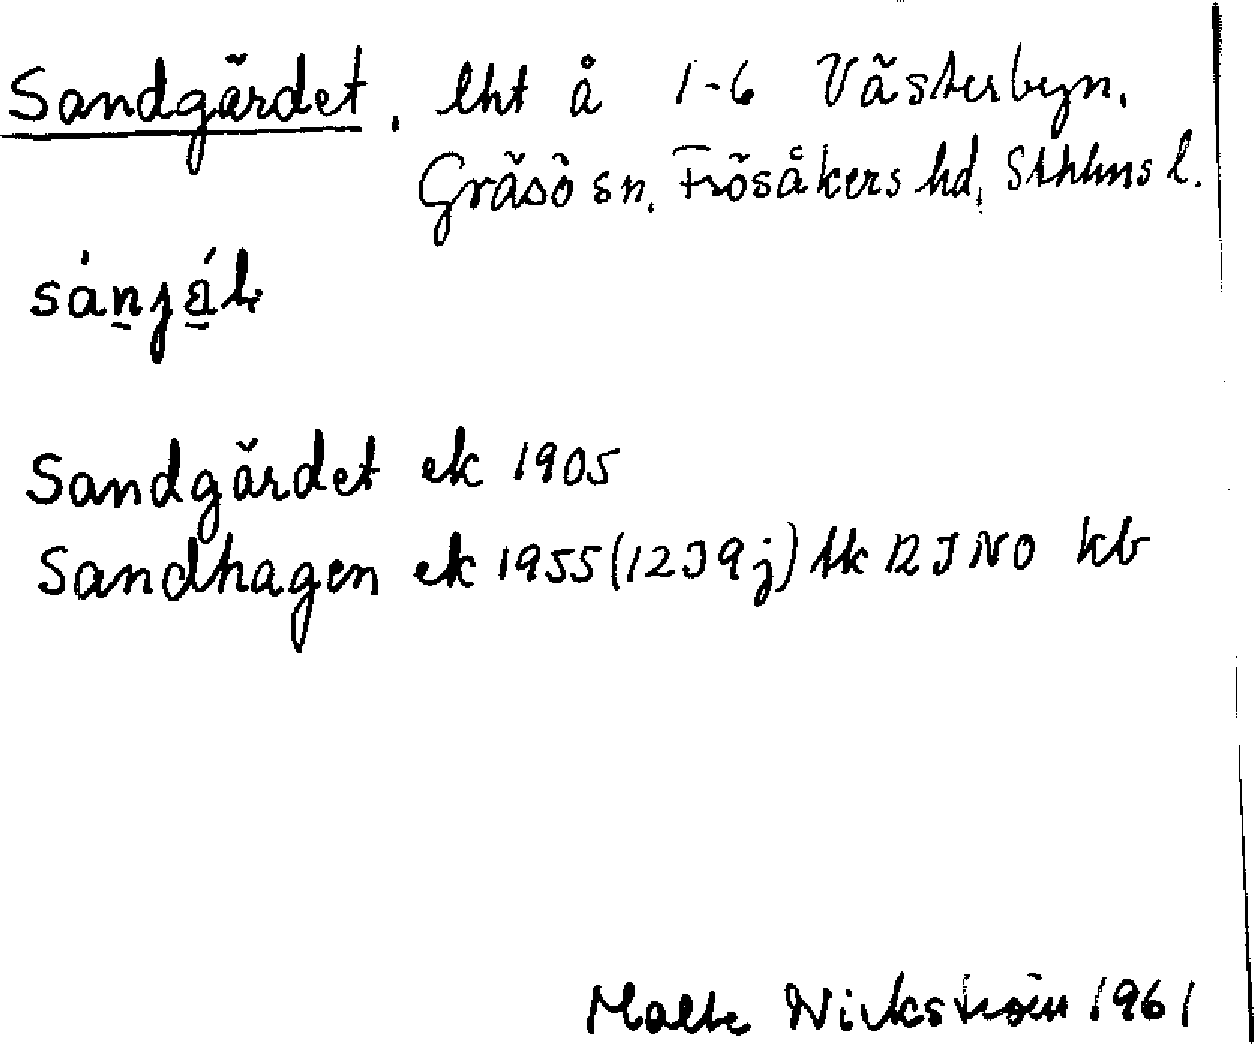 Sandgärdet, lht å 1-6 Västerbyn,
Gräsö sn, Frösåkers hd, Sthlms l.
Sandgärdet ek 1905
Sandhagen ek 1955 (12J9j) tk RJNO kb
Malte Nickström 1961